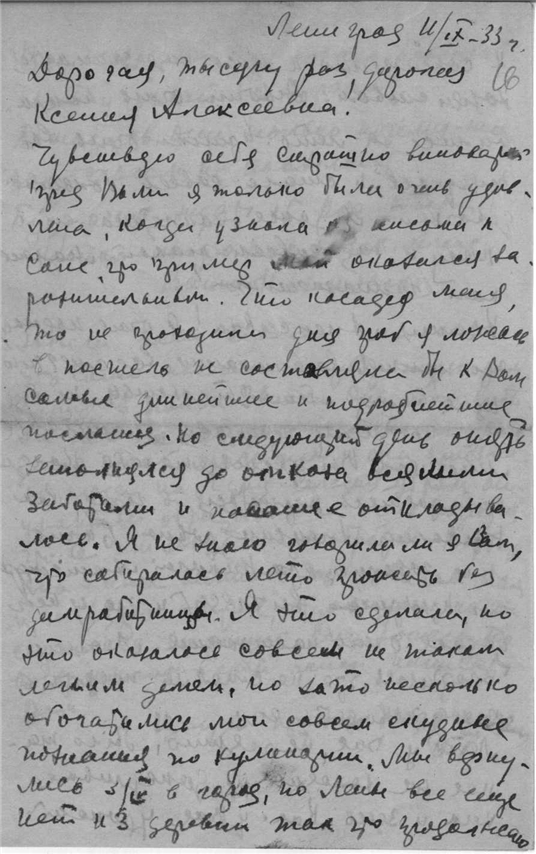 Ленинград 11/IX-33 г.
Дорогая, тысячу раз дорогая 16
Ксения Алексеевна.
Чувствую себя страшно виноватой
пред Вами я только была очень удив-
лена, когда узнала из письма к
Соне, что пример мой оказался за-
разительным. Что касается меня,
то не проходило дня чтоб я ложась
в постель не составляла бы к Вам
самые длиннейшие и подробнейшие
послания. Но следующий день опять
заполнялся до отказа всякими
заботами и писание откладыва-
лось. Я не знаю говорила ли я Вам,
что собиралась лето прожить без
домработницы. Я это сделала, но
это оказалось совсем не таким
легким делом, но зато несколько
обогатились мои совсем скудные
познания по кулинарии. Мы верну-
лись 3/IX в город, но Лены все еще
нет из деревни так что продолжаю